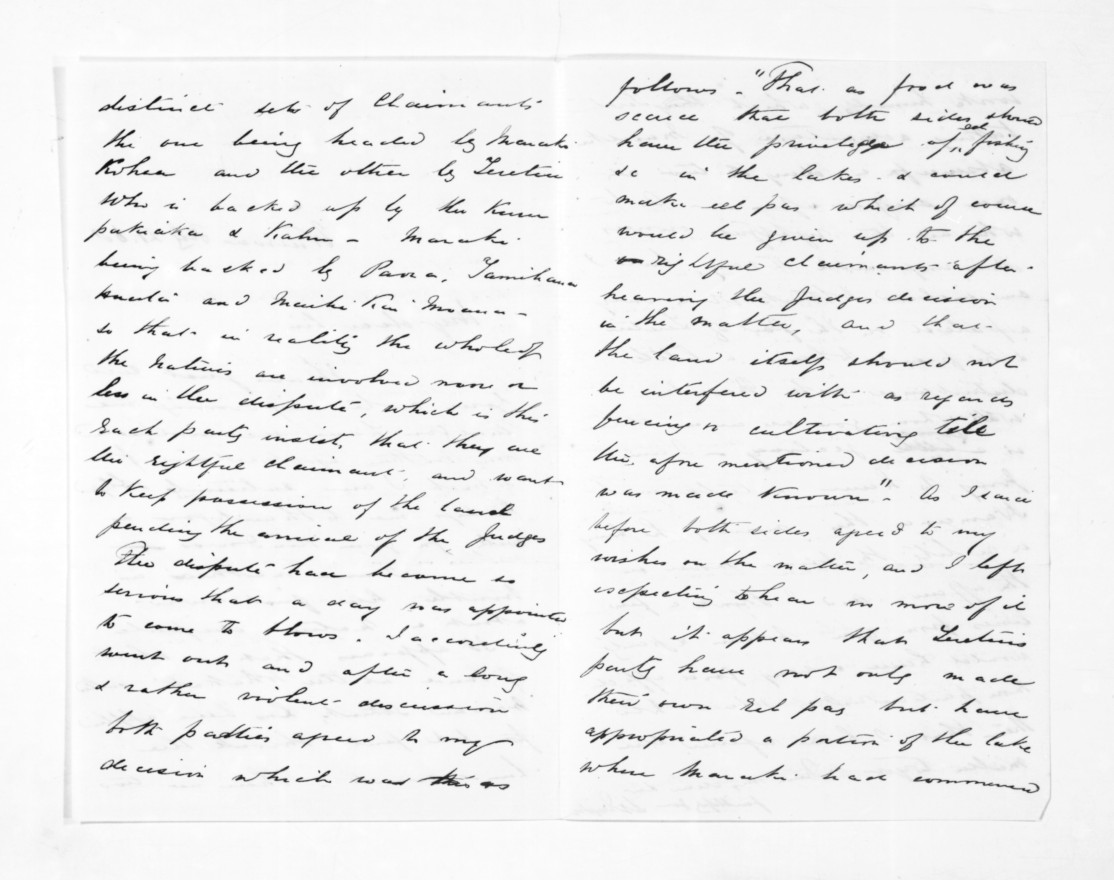 distinct sets of Claimants
the one being headed by Maraki
Kohea and the other by Teretiu
who is backed up by the Kuru
pakiaka & Kahu - Maraki
being backed by Paora, Tamihana
Huata and Maihi Kai Moana -
so that in reality the whole of
the Natives are involved more or
less in the dispute, which is this
Each party insists that they are
the rightful claimant, and want
to keep possession of the land
pending the arrival of the Judges
The dispute had become so
serious that a day was appointed
to come to blows. I accordingly
went out and after a long
& rather violent discussion
both parties agreed to my
decision which was this as
follows - "That as food was
scarce that both sides should
have the privilege of eel fishing
&c in the lakes & could
make eel pas which of course
would be given up to the
rightful claimants after
hearing the Judges decision
in the matter, and that
the land itself should not
be interfered with as regards
fencing or cultivating till
the afore mentioned decision
was made known". As I said
before both sides agreed to my
wishes on the matter, and I left
expecting to hear no more of it
but it appears that Teretius
party have not only made
their own Eel pas but have
appropriated a portion of the lake
where Maraki had commenced